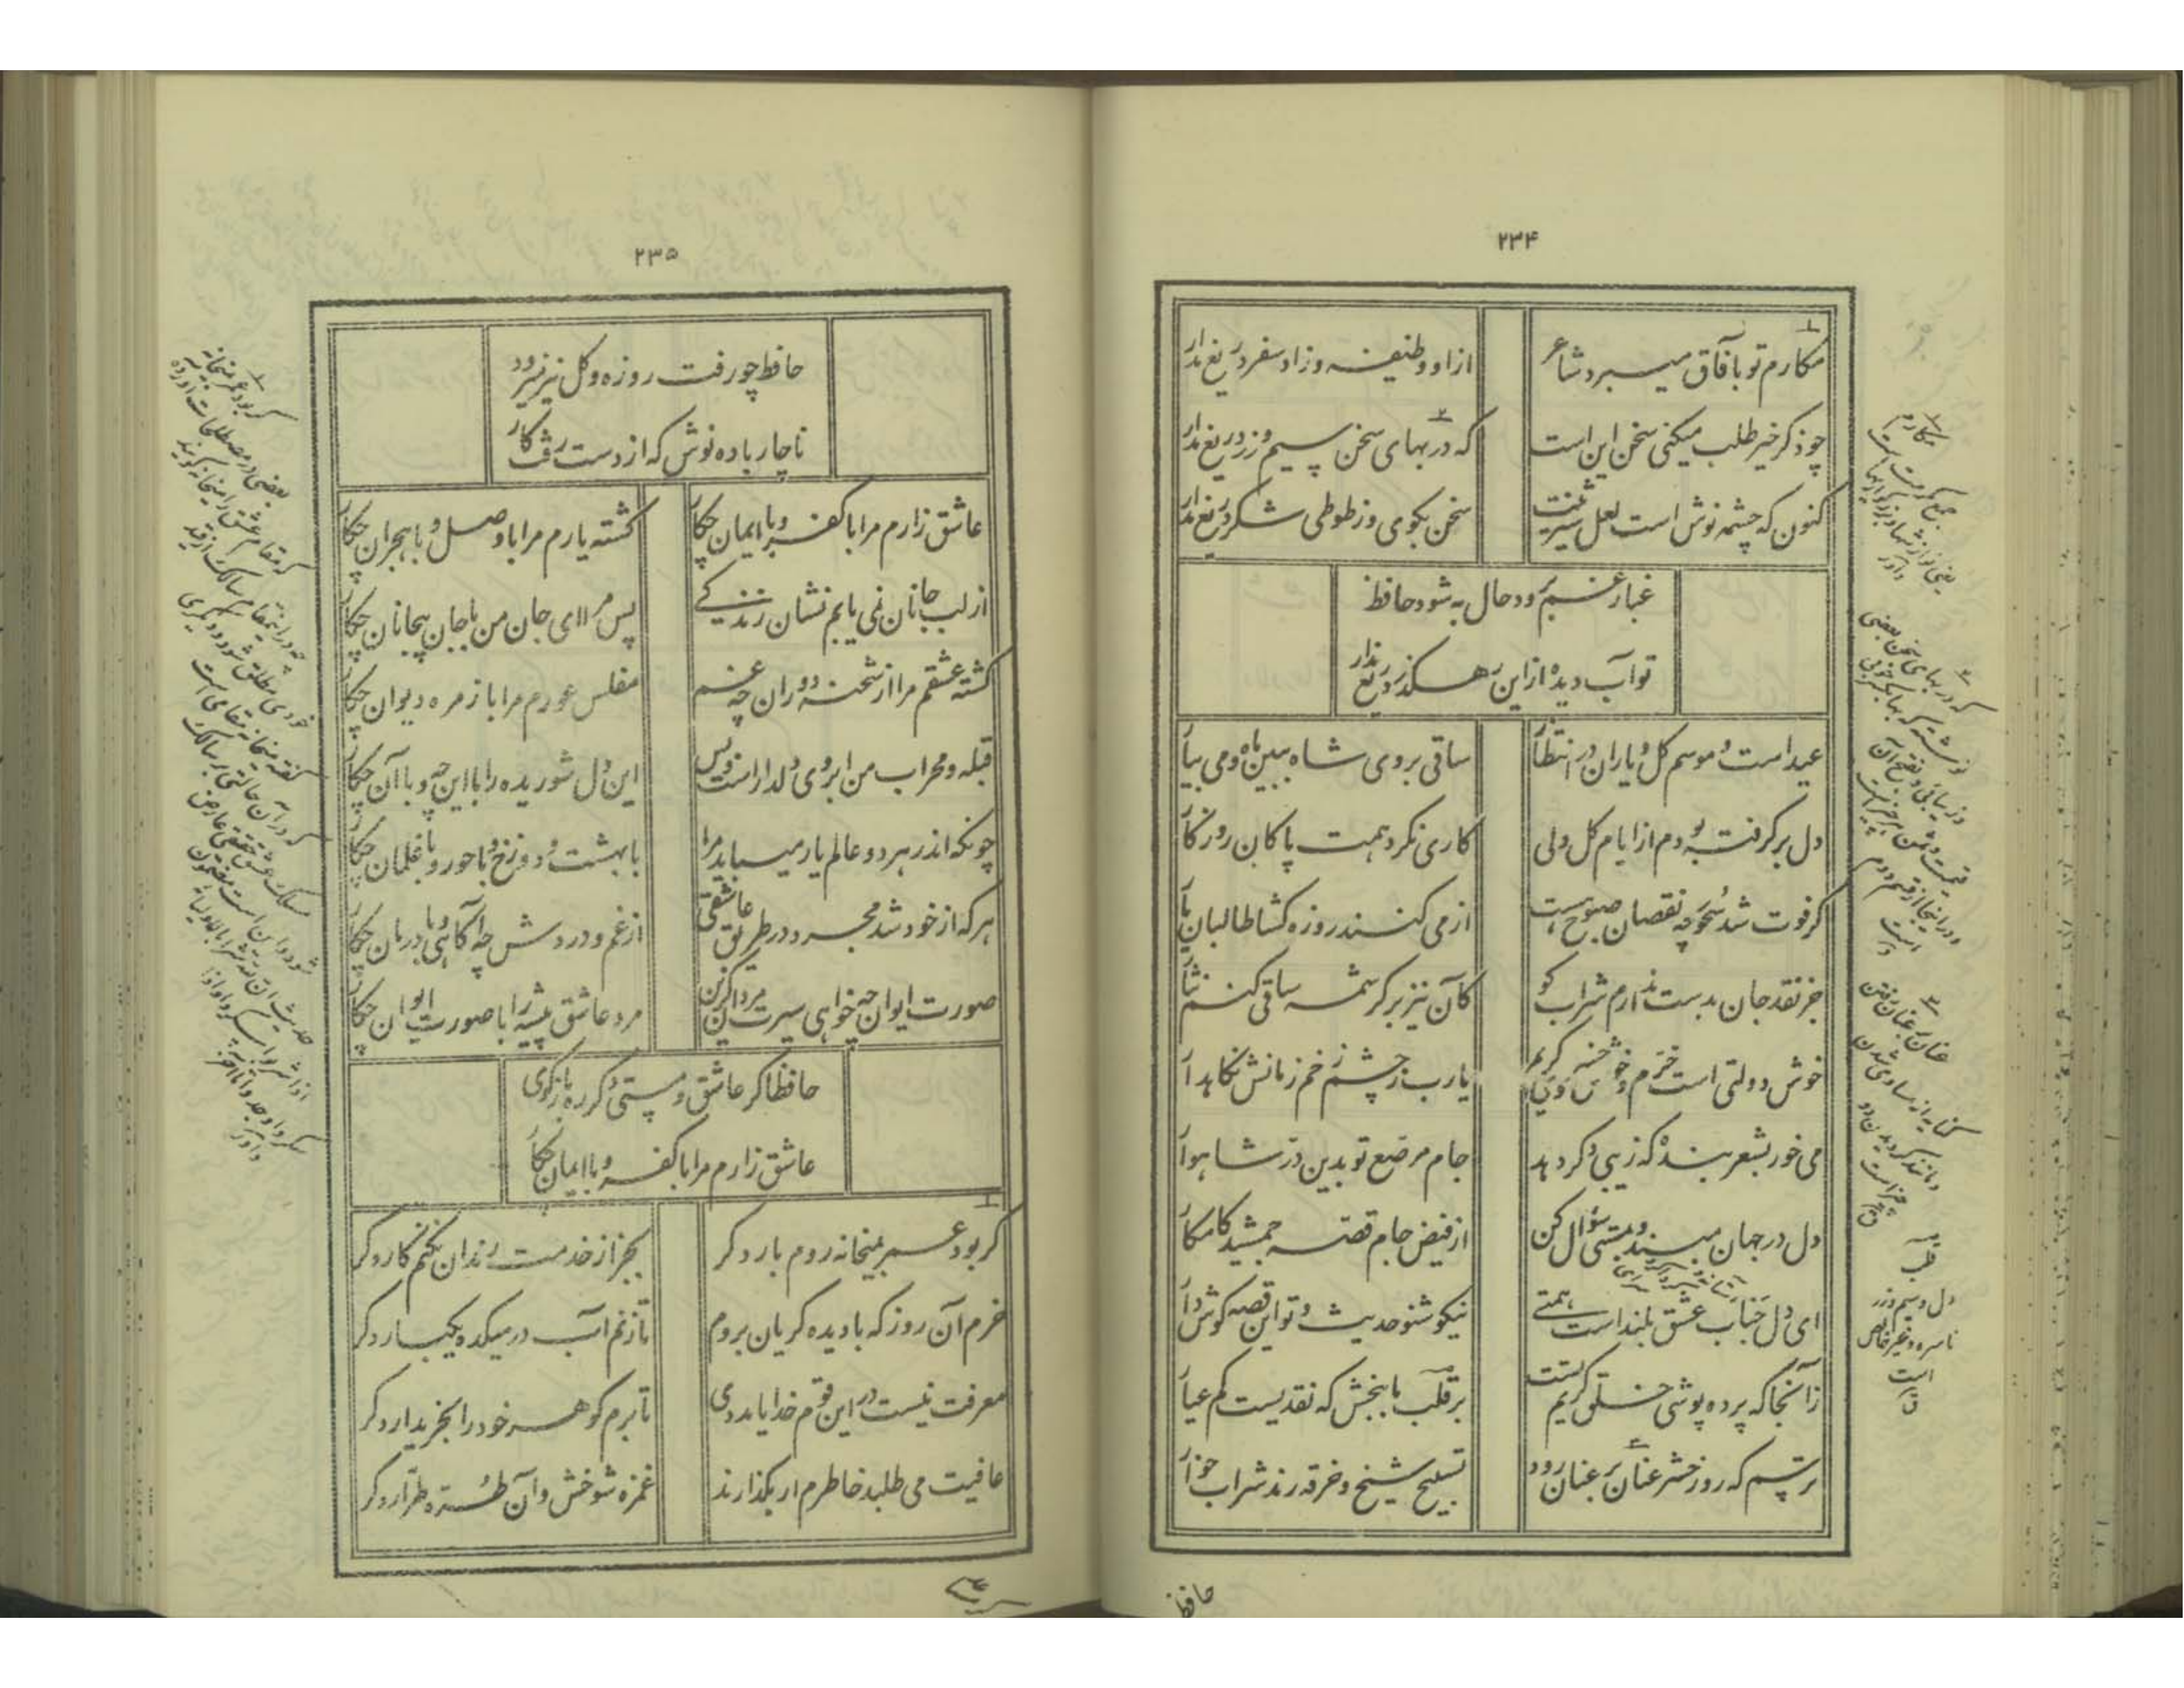 ۲۳۴
مکارم تو بآفاق میبرد شاعر
از او وظیفه و زاد سفر دریغ مدار
چو ذکر خیر طلب میکنی سخن این است
که در بهای سخن سیم و زر دریغ مدار
کنون که چشمه نوش است لعل شیرینت
سخن بکوی و ز طوطی شکر دریغ مدار
غبار غم برود حال به شود حافظ
تو آب دیده از این رهکذر دریغ مدار
عید است و موسم کل و یاران در انتظار
ساقی بروی شاه ببین ماه و می بیار
دل برکرفته بودم از ایام کل ولی
کاری نکرد همت پاکان روزکار
کر فوت شد سحور چه نقصان صبوح هست
از می کنند روزه کشا طالبان یار
جز نقد جان بدست ندارم شراب کو
کآن نیز بر کرشمه ساقی کنم نثار
خوش دولتی است خرم و خوش خسروی کریم
یارب ز چشم زخم زمانش نکاهدار
می خور بشعر بنده که زیبی دکر دهد
جام مرصع تو بدین در شاهوار
دل در جهان مبند و بمستی سؤال کن
از فیض جام قصه جمشید کامکار
ای دل جناب عشق بلند است همتی
نیکو شنو حدیث و تو این قصه کوش دار
زآنجا که پرده پوشی خلق کریم تست
بر قلب ما ببخش که نقدیست کم عیار
ترسم که روز حشر عنان بر عنان رود
تسبیح شیخ و خرقه رند شراب خوار
مکارم
جمع مکرمت است
یعنی نوازشها و بزرکواریها
که در بهای سخن بعضی
نوشته که بها بکسر خوبی
و زیبائی و بفتح آن
قیمت و ثمن هر چیز است
و در اینجا از قسم دوم
است
عنان بر عنان رفتن
کنایه از مساوی شدن
و مانند کردیدن دو
چیز است
ق
قلب
دل و سیم و زر
ناسره و غیر خالص
است
ق
حافظ
۲۳۵
حافظ چو رفت روزه و کل نیز میرود
ناچار باده نوش که از دست رفت کار
عاشق زارم مرا با کفر و با ایمان چکار
کشته یارم مرا با وصل و با هجران چکار
از لب جانان نمی یابم نشان زندکی
پس مرا ای جان من با جان بیجانان چکار
کشته عشقم مرا از شحنه دوران چه غم
مفلس عورم مرا با زمره دیوان چکار
قبله و محراب من ابروی دلدار است و بس
این دل شوریده را با این چه و با آن چکار
چونکه اندر هر دو عالم یار میباید مرا
با بهشت و دوزخ و با حور و با غلمان چکار
هر که از خود شد مجرد در طریق عاشقی
از غم و دردش چه آکاهی و با درمان چکار
صورت ایوان چه خواهی سیرت مردان کزین
مرد عاشق پیشه را با صورت ایوان چکار
حافظا کر عاشق و مستی دکر ره باز کوی
عاشق زارم مرا با کفر و با ایمان چکار
کر بود عمر بمیخانه روم بار دکر
بجز از خدمت رندان نکنم کار دکر
خرم آن روز که با دیده کریان بروم
تا زنم آب در میکده یکبار دکر
معرفت نیست در این قوم خدایا مددی
تا برم کوهر خود را بخریدار دکر
عافیت می طلبد خاطرم ار بکذارند
غمزه شوخش و آن طره طرار دکر
کر بود عمر بمیخانه
بعضی در مصطلحات آورده
که مقام عشق را میخانه کویند